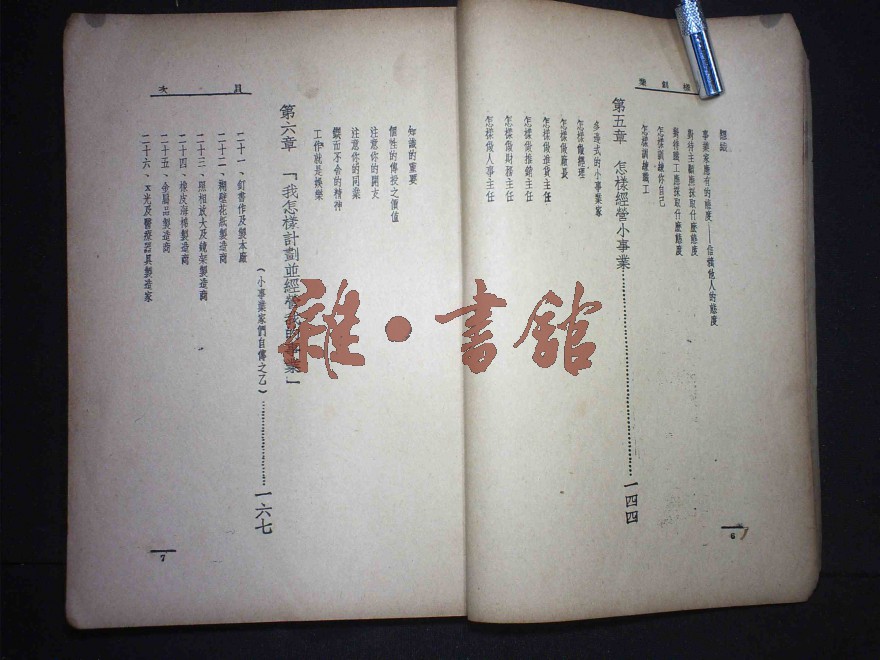 經驗
事業家應有的態度——信賴他人的態度
對待主顧應採取什麼態度
對待職工應採取什麼態度
怎樣訓練你自己
怎樣訓練職工
第五章 怎樣經營小事業……一四四
多造式的小事業家
怎樣做經理
怎樣做廠長
怎樣做進貨主任
怎樣做推銷主任
怎樣做財務主任
怎樣做人事主任
6
目次
知識的重要
個性的傳授之價值
注意你的開支
注意你的同業
鍥而不舍的精神
工作就是娛樂
第六章 「我怎樣計劃並經營我的事業」
(小事業家們自傳之乙)……一六七
二十一、釘書作及製本廠
二十二、糊壁花紙製造商
二十三、照相放大及鏡架製造商
二十四、橡皮海棉製造商
二十五、金屬品製造商
二十六、x光及醫療器具製造家
7
雜·書館